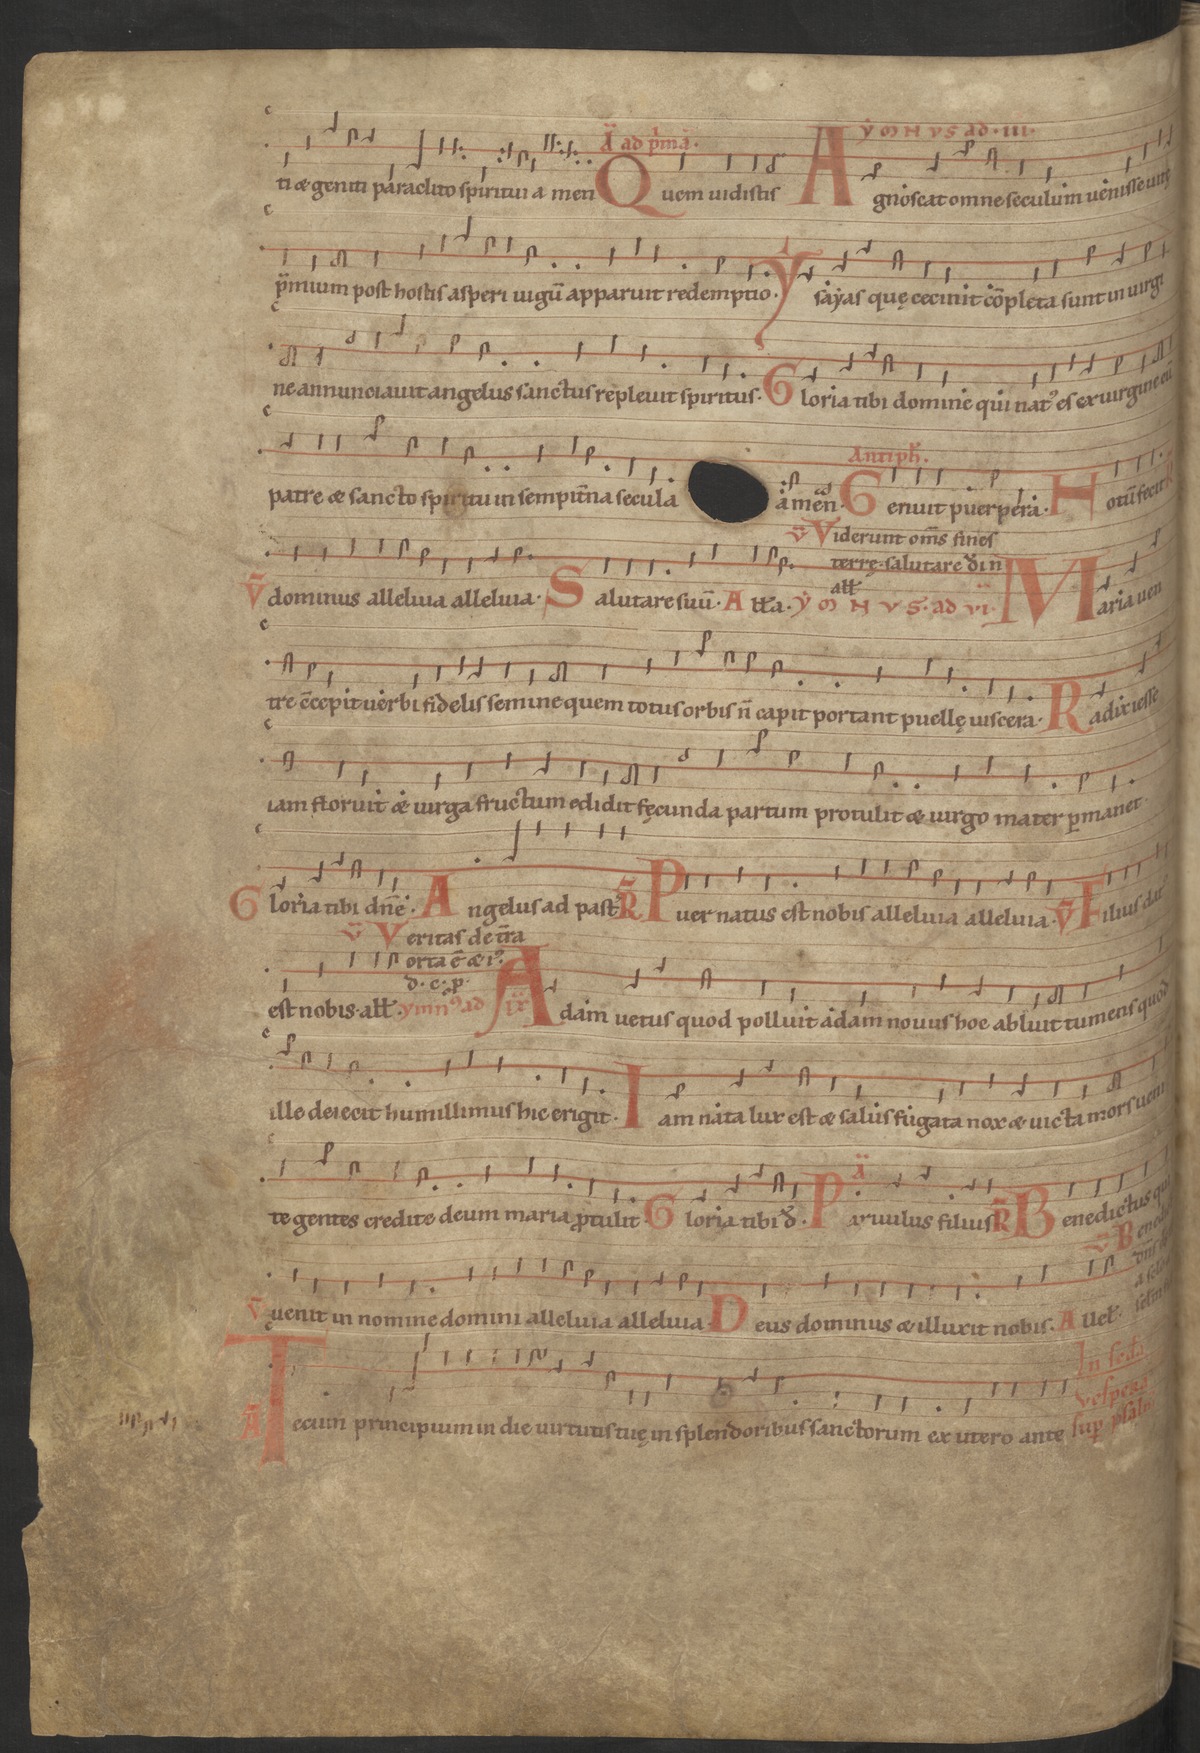 A ad p̄mā· YMNUS ad·III·
ti & geniti paraclito spiritui a men Quem uidistis Agnoscat omne seculum uenisse uitę
p̄mium post hostis asperi iugū apparuit redemptio· Ysayas quę cecinit cōpleta sunt in uirgi
ne annunciauit angelus sanctus repleuit spiritus· Gloria tibi domine qui nat᾽ es ex uirgine cū
Antiph̄.
patre & sancto spiritu in sempit̄na secula amen· Genuit puerpera· Notū fecit
v̄ Viderunt om̄s fines
terrę salutare di n̄
all̄
v̄ dominus alleluia alleluia· Salutare suū· All̄a· YMNUS· ad VI· Maria uen
tre c̄cepit uerbi fidelis semine quem totus orbis n̄ capit portant puellę uiscera· Radix iesse
iam floruit & uirga fructum edidit fęcunda partum protulit & uirgo mater p̄manet·
Gloria tibi dn̄e· Angelus ad past᾽ R̄ Puer natus est nobis alleluia alleluia· v̄ Filius dat᾽
v̄ Veritas de t̄ra
orta ē & i᾽
d· c· p·
est nobis· all̄· ymn᾽ ad ix Adam uetus quod polluit adam nouus hoc abluit tumens quod
ille deiecit humillimus hic erigit· Iam nata lux est & salus fugata nox & uicta mors ueni
te gentes credite deum maria p̄tulit· Gloria tibi d̄· A Paruulus filius R̄ Benedictus qui
v̄ uenit in nomine domini alleluia alleluia· Deus dominus & illuxit nobis· Allel̄·
In scd̄a
vespera
sup̄ psalm
A Tecum principium in die uirtutis tuę in splendoribus sanctorum ex utero ante